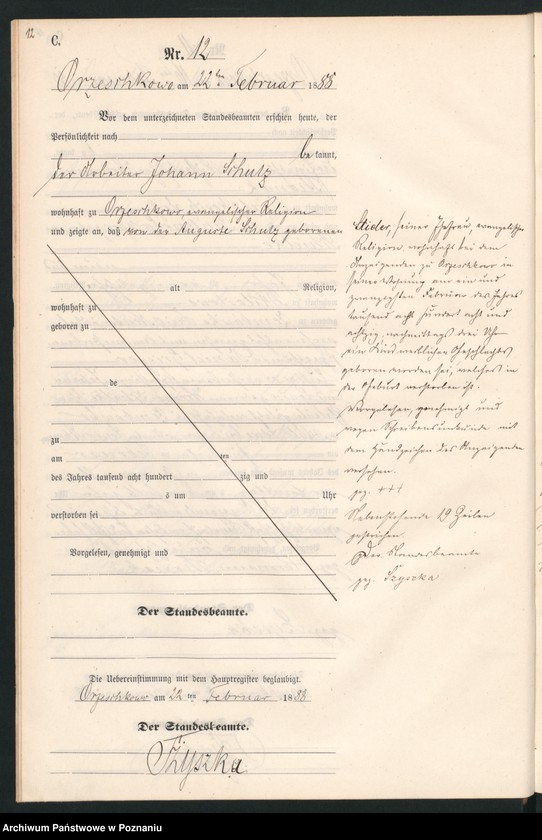 12
C.
Nr. 12
Orzeschkowo am 22ten Februar 1888
Vor dem unterzeichneten Standesbeamten erschien heute, der
Persönlichkeit nach
be kannt,
der Arbeiter Johann Schulz
wohnhaft zu Orzeschkowo, evangelischer Religion
und zeigte an, daß von der Auguste Schulz geborenen
Stieler, seiner Ehefrau, evangelischer
Religion, wohnhaft bei dem
Anzeigenden zu Orzeschkowo in
seiner Wohnung am ein und
zwanzigsten Februar des Jahres
tausend acht hundert acht und
achtzig nachmittags drei Uhr
ein Kind weiblichen Geschlechts
geboren worden sei, welches in
der Geburt verstorben ist.
Vorgelesen, genehmigt und
wegen Schreibensunkunde mit
dem Handzeichen des Anzeigenden
versehen.
gez. +++
Nebenstehende 19 Zeilen
gestrichen.
Der Standesbeamte
gez. Tzyszka
alt Religion,
wohnhaft zu
geboren zu
de
zu
am ten
des Jahres tausend acht hundert zig und
s um Uhr
verstorben sei
Vorgelesen, genehmigt und
Der Standesbeamte.
Die Uebereinstimmung mit dem Hauptregister beglaubigt.
Orzeschkowo am 22 ten Februar 1888
Der Standesbeamte.
Tzyszka
Archiwum Państwowe w Poznaniu